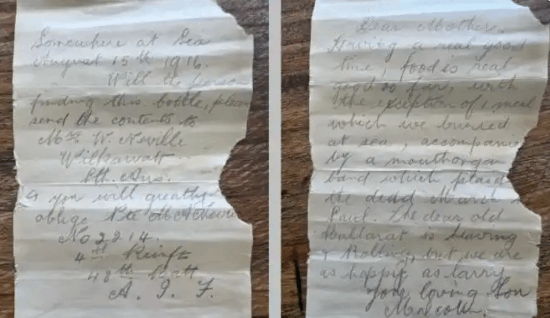 Somewhere at Sea
August 15th 1916.
Will the person
finding this bottle, please
send the contents to
Mrs W. Neville
Wilkawatt
Sth. Aus.
& you will greatly
oblige Pte M A Neville
No
4th Reinfs
48th Batt
A. I. F.
Dear Mother,
Having a real good
time, food is real
good so far, with
the exception of 1 meal
which we buried
at sea, accompanied
by a mouthorgan
band which played
the dead March in
Saul. The dear old
Ballarat is heaving
& Rolling, but we are
as happy as Larry
Your loving Son
Malcolm.